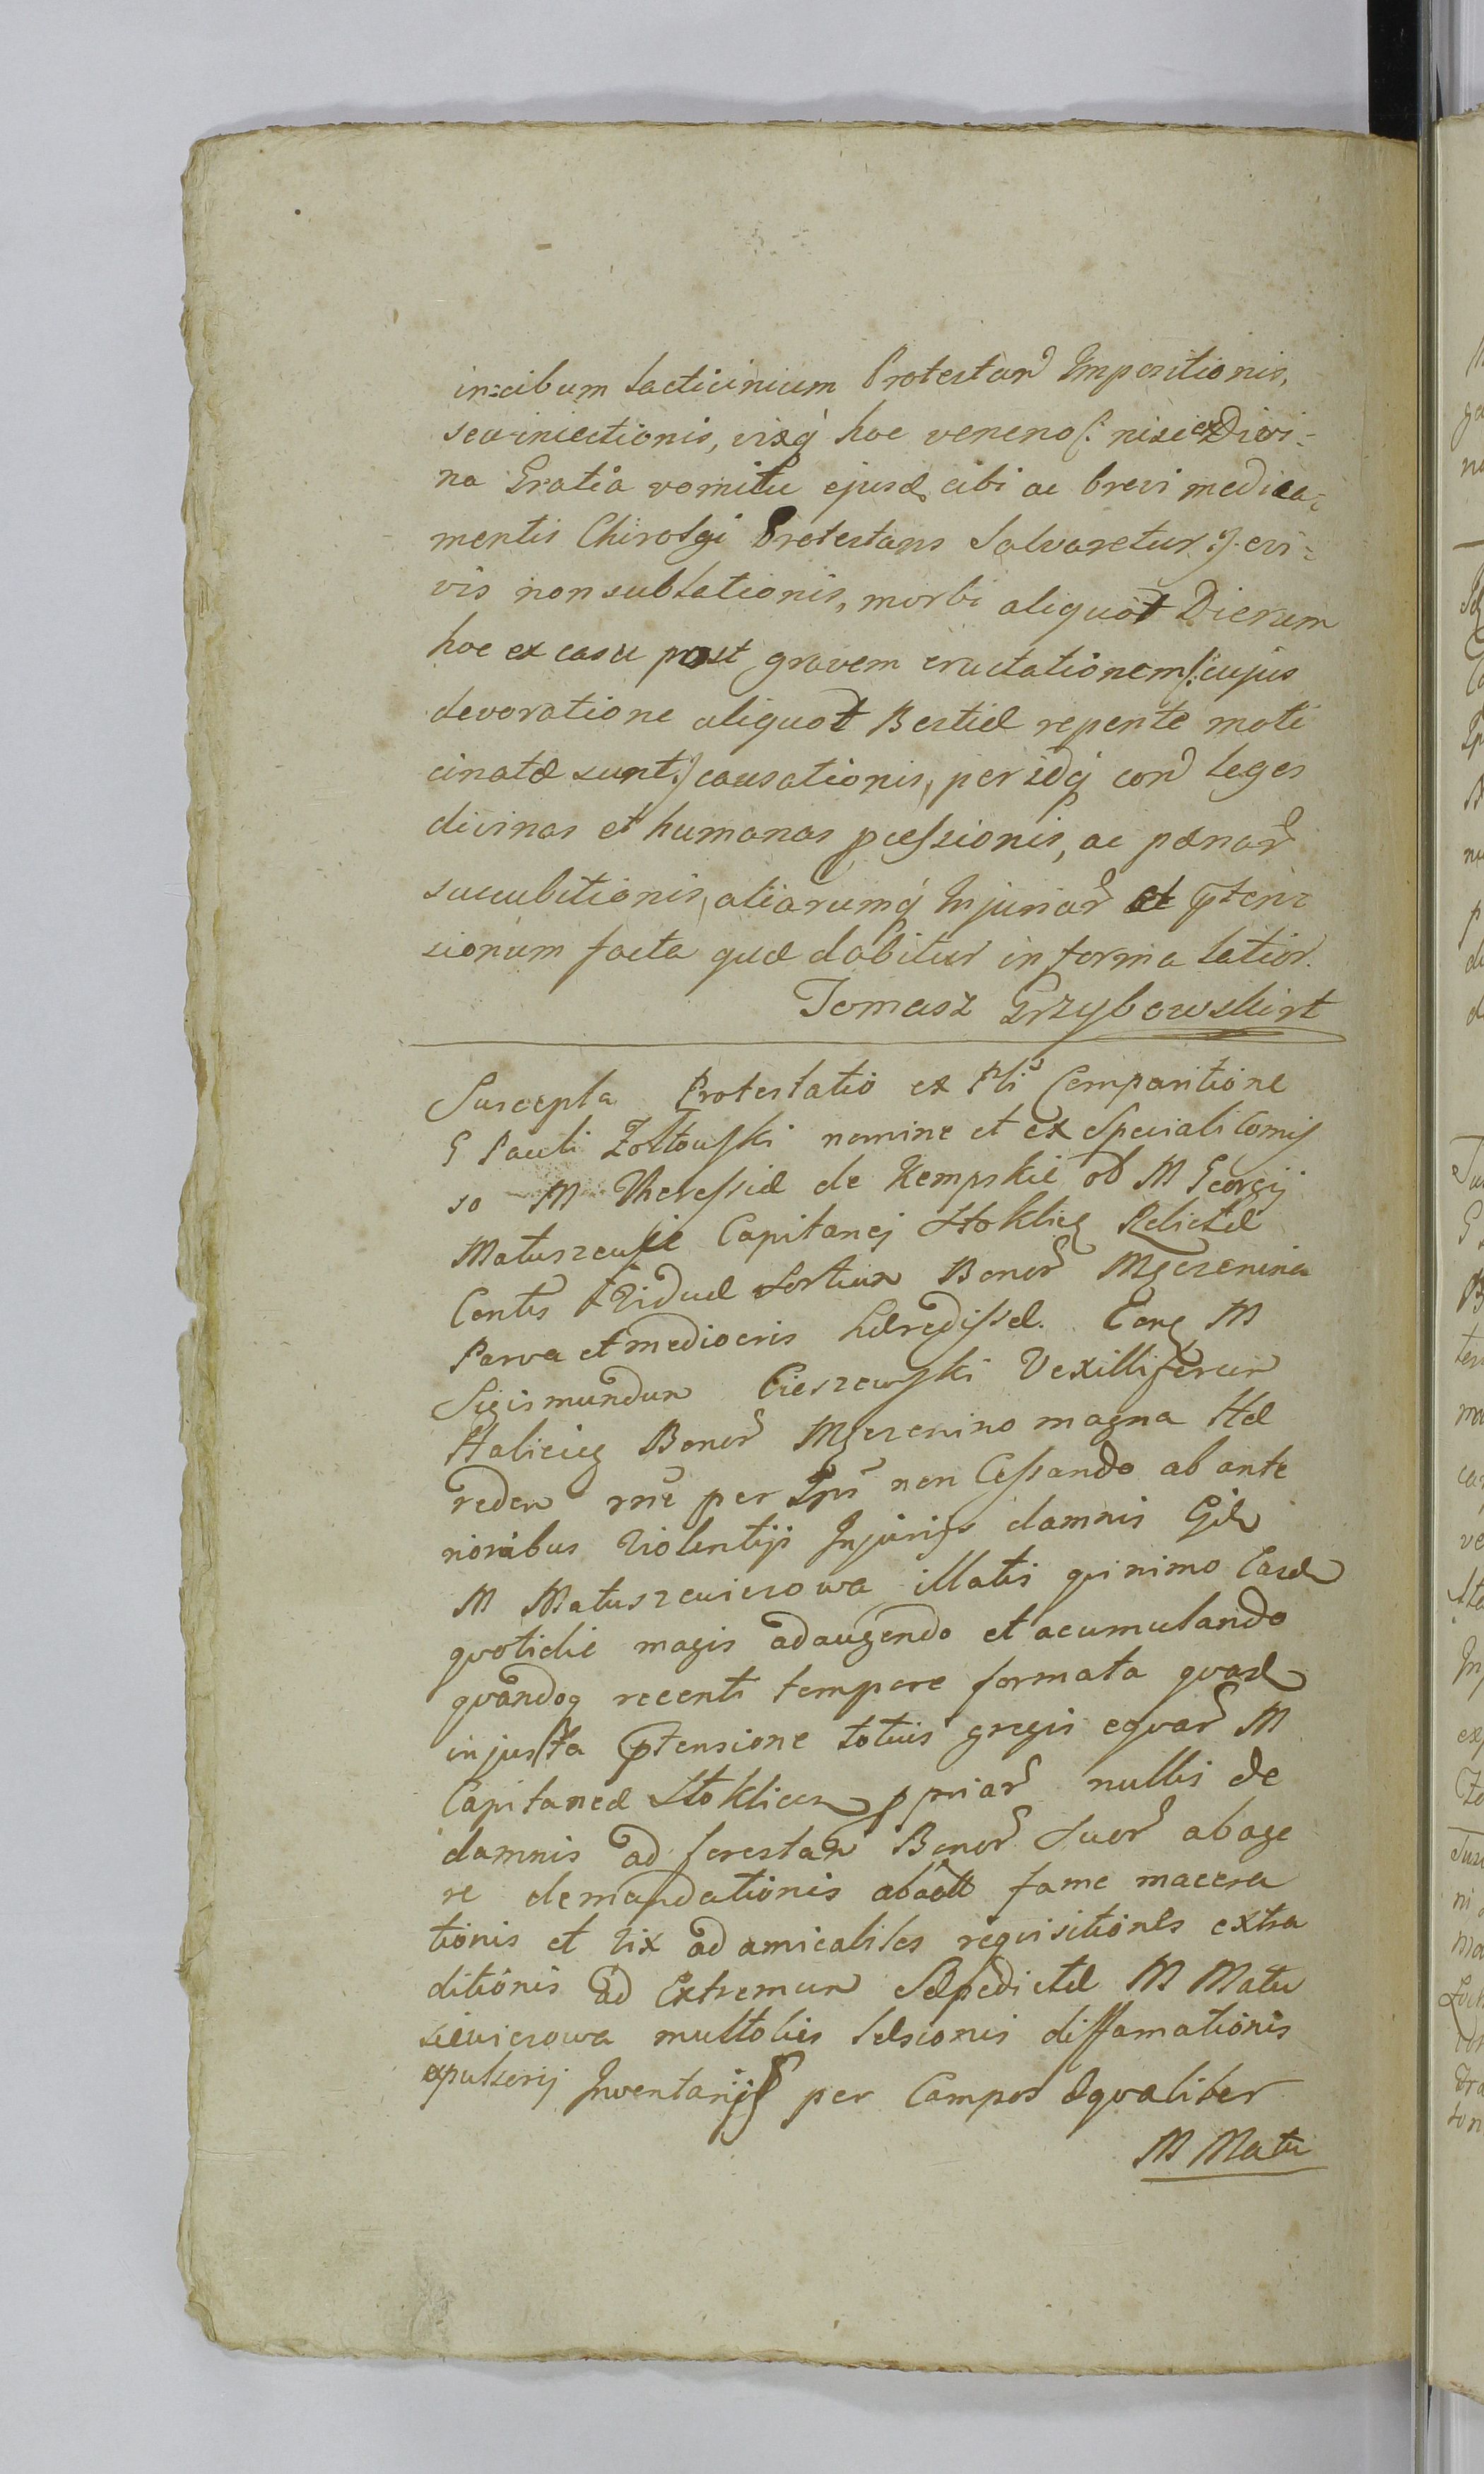 in=cibum lacticinium Protestan Impositionis,
seu iniectionis, vixq hoc veneno /: nisi ex Divi=
na Gratia vomitu ejusd cibi ac brevi medica=
mentis Chirolgi Protestans Salvaretur :/ evi=
vis non sublationis, morbi aliquot Dierum
hoc ex casu post gravem eructationem /: cujus
devoratione aliquot Bestiæ repente moti
cinatæ sunt :/ causationis, per idq con leges
divinas et humanas pcessionis, ac pænar
succubitionis, aliarumq Injuriar et pten=
sionum facta quæ dabitur in forma latior.
Tomasz Grzybowski rt
Suscepta Protestatio ex Pli Comparitione
G Pauli Żołtowski nomine et ex Speciali Comis
so M Theressiæ de Kempskie ol M Georgij
Matuszewic Capitanej Stoklice Relictæ
Contis Viduæ Sortium Bonor Mszczenina
Parva et mediocris hæredissæ. Cong M
Sigismundum Cieszewski Vexilliferum
Halicien Bonor Mszczenino magna Hæ
redem rne per Ips non Cessando ab ante
rioribus Violentijs Injurijs damnis Gd
M Matuszewicsowa illatis quinimo Easd
quotidie magis adaugendo et acumulando
quandoq recenti tempore formata quad
injusta ptensione totius gregis equar M
Capitaneæ Stoklicen ppriar nullis de
damnis ad forestam Bonor Suor ab age
re demandationis abaott fame macera
tionis et vix ad amicabiles requisitiones extra
ditionis ad Extremum Sæpedictæ M Matu
siewicsowa multoties læsionis diffamationis
expulsorij Inventarij per Campos Æqualiter
M Matu